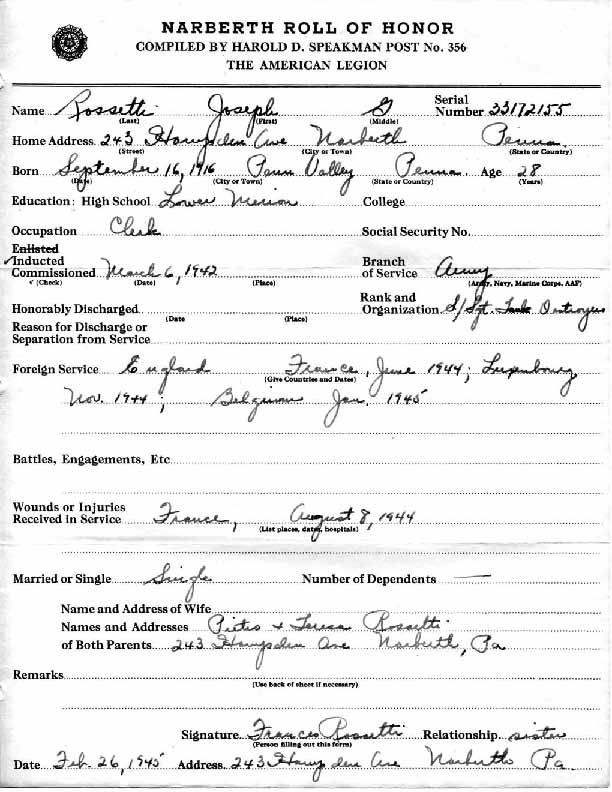 NARBERTH ROLL OF HONOR
COMPILED BY HAROLD D. SPEAKMAN POST No. 356
THE AMERICAN LEGION
Name Rossetti Joseph G Serial Number 33172155
(Last) (First) (Middle)
Home Address 243 Hampden Ave Narberth Penna
(Street) (City or Town) (State or Country)
Born September 16, 1916 Penn Valley Penna Age 28
(Date) (City or Town) (State or Country) (Years)
Education: High School Lower Merion College
Occupation Clerk Social Security No.
Enlisted
✓Inducted
Commissioned March 6, 1942 Branch of Service Army
✓ (Check) (Date) (Place) (Army, Navy, Marine Corps, AAF)
Honorably Discharged Rank and Organization S/Sgt. Tank Destroyers
(Date) (Place)
Reason for Discharge or
Separation from Service
Foreign Service England France, June 1944; Luxembourg
(Give Countries and Dates)
Nov. 1944; Belgium Jan. 1945
Battles, Engagements, Etc
Wounds or Injuries
Received in Service France, August 8, 1944
(List places, dates, hospitals)
Married or Single Single Number of Dependents —
Name and Address of Wife
Names and Addresses Pietro + Teresa Rossetti
of Both Parents 243 Hampden Ave Narberth, Pa
Remarks
(Use back of sheet if necessary)
Signature Frances Rossetti Relationship sister
(Person filling out this form)
Date Feb. 26, 1945 Address 243 Hampden Ave Narberth Pa